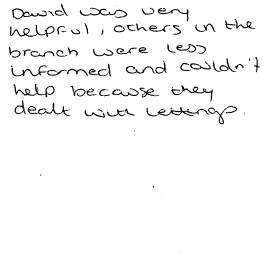 David was very
helpful, others in the
branch were less
informed and couldn't
help because they
dealt with lettings.